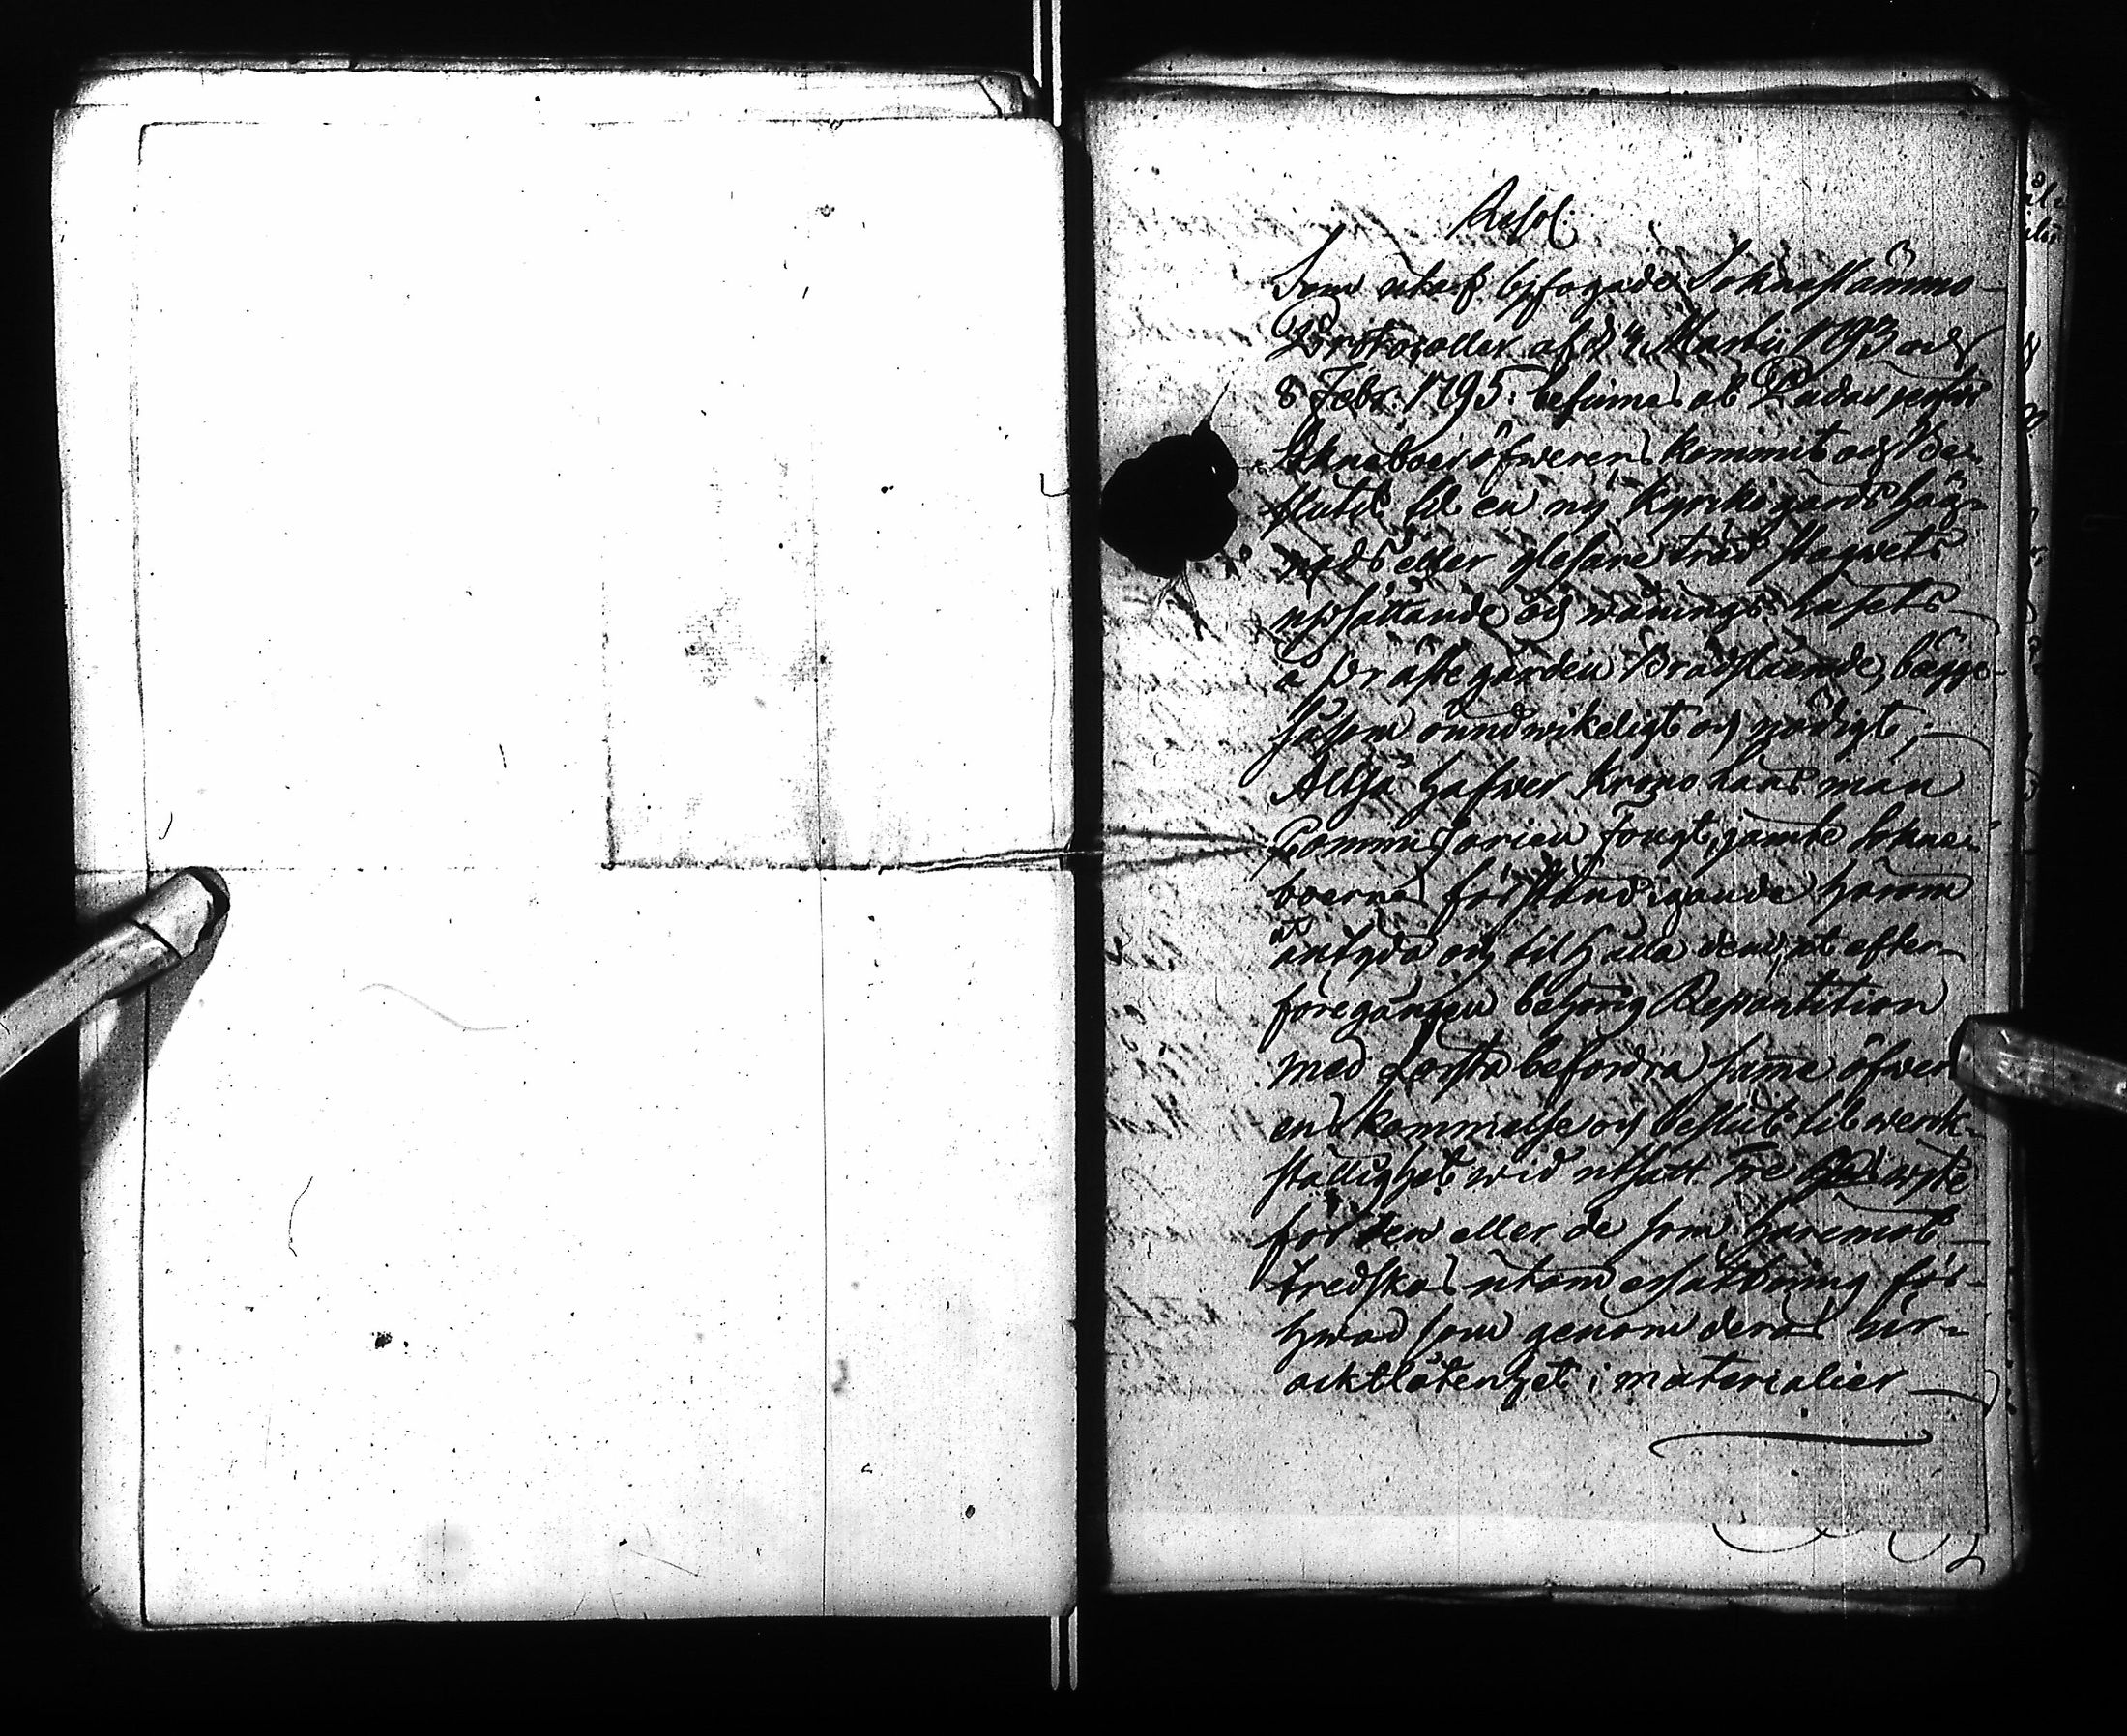 Resol:
Som utaf byfogade Sokne stämmo-
Protocoller af d 4 Martii 1793 och
8 Febr: 1795: befinnes at Pedarsperse
Sokneboer öfwerens kommit och be-
slutit til en ny Kyrkogårds häg-
nads eller glesare träd stagwets
upsättande och wånings husets
å Prästegården Brädslående, bägge
såsom oundwikeligt och nödigt;
Altså hafwer Krono Länsman
Commissarien Fougt, jämte Sokne-
boernes förständigande härom
antyda och tilhålla dem, at efter
föregången behörig Repartition
med första befordra sama öfwer
ens kommelse och beslut til werk-
ställighet wid utsatt wite
för den eller de som häremot
tredskas utom ersättning för
hwad som genom deras ur-
acktlåtenhet i materialier